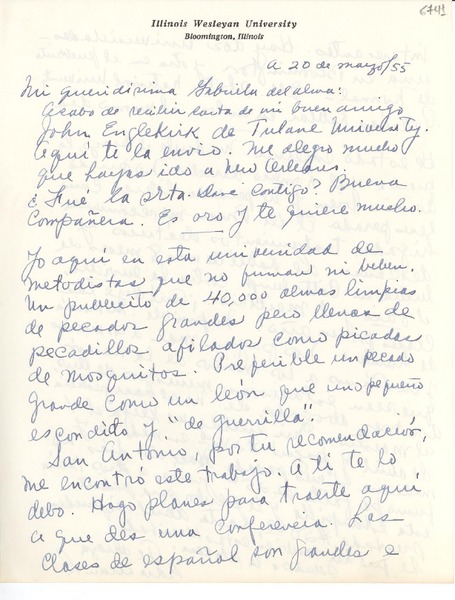 6741
Illinois Wesleyan University
Bloomington, Illinois
a 20 de mayo/55
Mi queridísima Gabriela del alma:
Acabo de recibir carta de mi buen amigo
John Englekirk de Tulane University.
Aquí te la envio. Me alegro mucho
que hayas ido a New Orleans.
¿Fué la Srta. Dana contigo? Buena
Compañera. Es oro y te quiere mucho.
Yo aquí en esta universidad de
metodistas que no fuman ni beben.
Un pueblecito de 40,000 almas limpias
de pecados grandes pero llenas de
pecadillos afilados como picadas
de mosquitos. Preferible un pecado
grande como un león que uno pequeño
escondido y "de guerrilla".
San Antonio, por tu recomendación,
me encontró este trabajo. A ti te lo
debo. Hago planes para traerte aquí
a que des una conferencia. Las
clases de español son grandes e